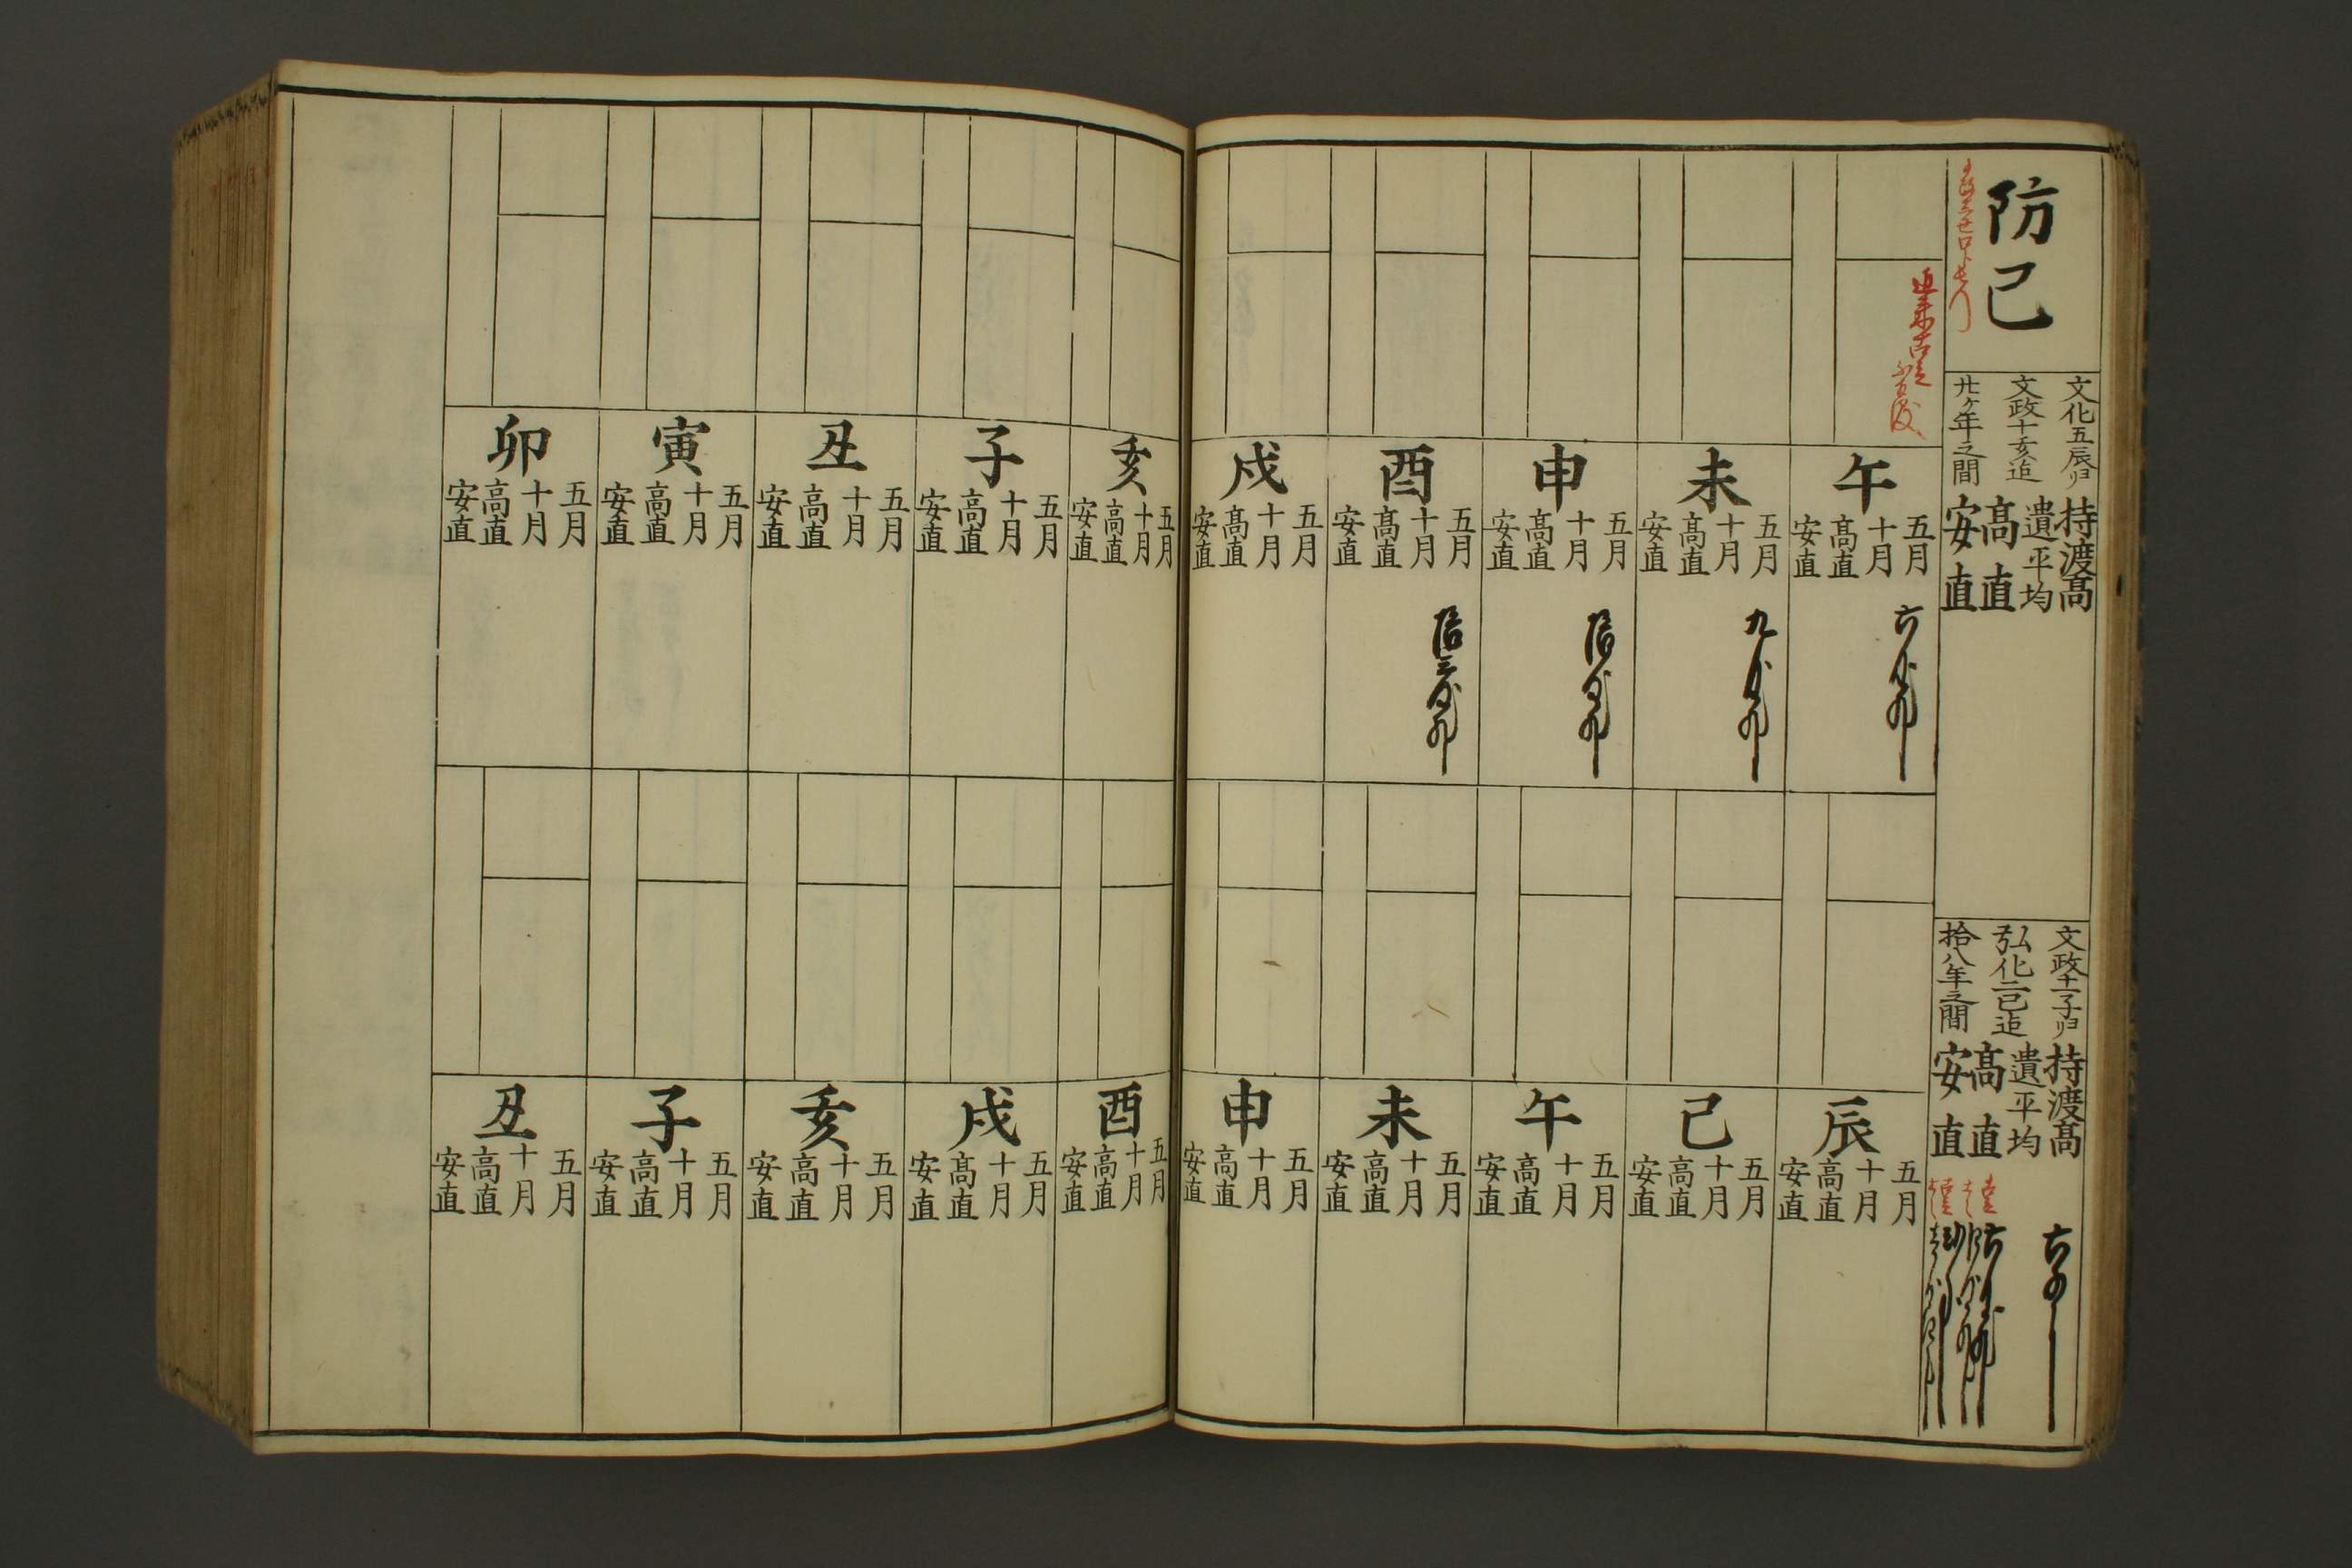 防己
文化五辰ヨリ
文政十亥迠
廿ヶ年之間
持渡髙
遺平均
髙直
安直
文政十一子ヨリ
弘化二巳迠
拾八年之間
持渡髙
遺平均
髙直
安直
午
五月
十月
髙直
安直
未
五月
十月
髙直
安直
申
五月
十月
髙直
安直
酉
五月
十月
髙直
安直
戌
五月
十月
髙直
安直
亥
五月
十月
髙直
安直
子
五月
十月
髙直
安直
丑
五月
十月
髙直
安直
寅
五月
十月
髙直
安直
卯
五月
十月
髙直
安直
辰
五月
十月
髙直
安直
巳
五月
十月
髙直
安直
午
五月
十月
髙直
安直
未
五月
十月
髙直
安直
申
五月
十月
髙直
安直
酉
五月
十月
髙直
安直
戌
五月
十月
髙直
安直
亥
五月
十月
髙直
安直
子
五月
十月
髙直
安直
丑
五月
十月
髙直
安直